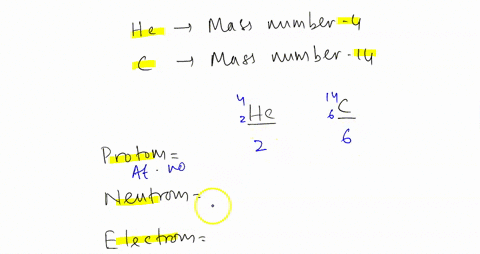 He → Mass number - 4
C → Mass number - 14
⁴₂He ¹⁴₆C
2 6
Protom =
At. no
Neutrom =
Electrom =